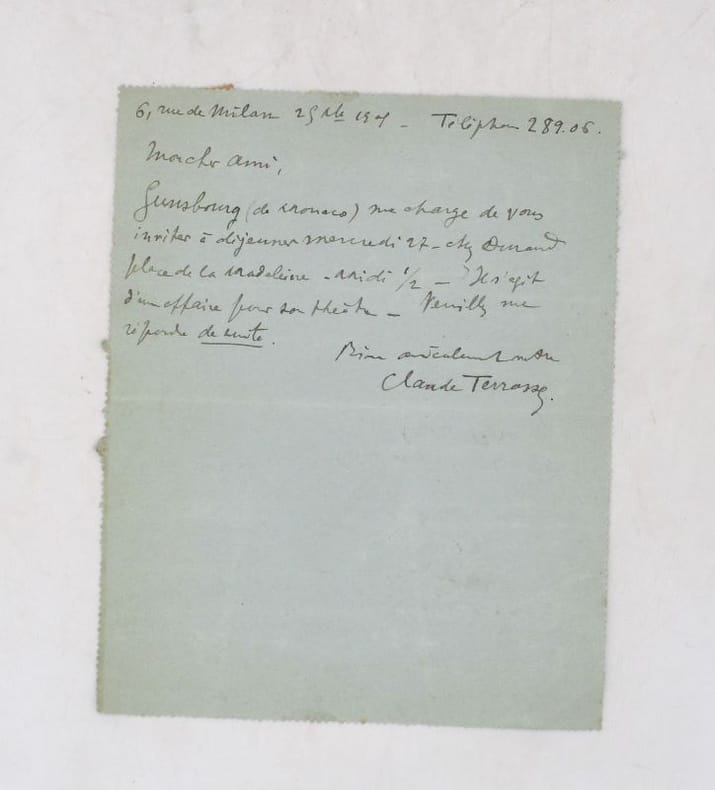 6, rue de Milan 25 Téléphon 289.06.
Mon cher ami,
Gunsbourg (de Monaco) me charge de vous
inviter à déjeuner mercredi 27 - chez Durand
place de la Madeleine - midi 1/2 - Il s'agit
d'une affaire pour son théâtre - Veuillez me
répondre de suite.
Bien cordialement votre
Claude Terrasse.